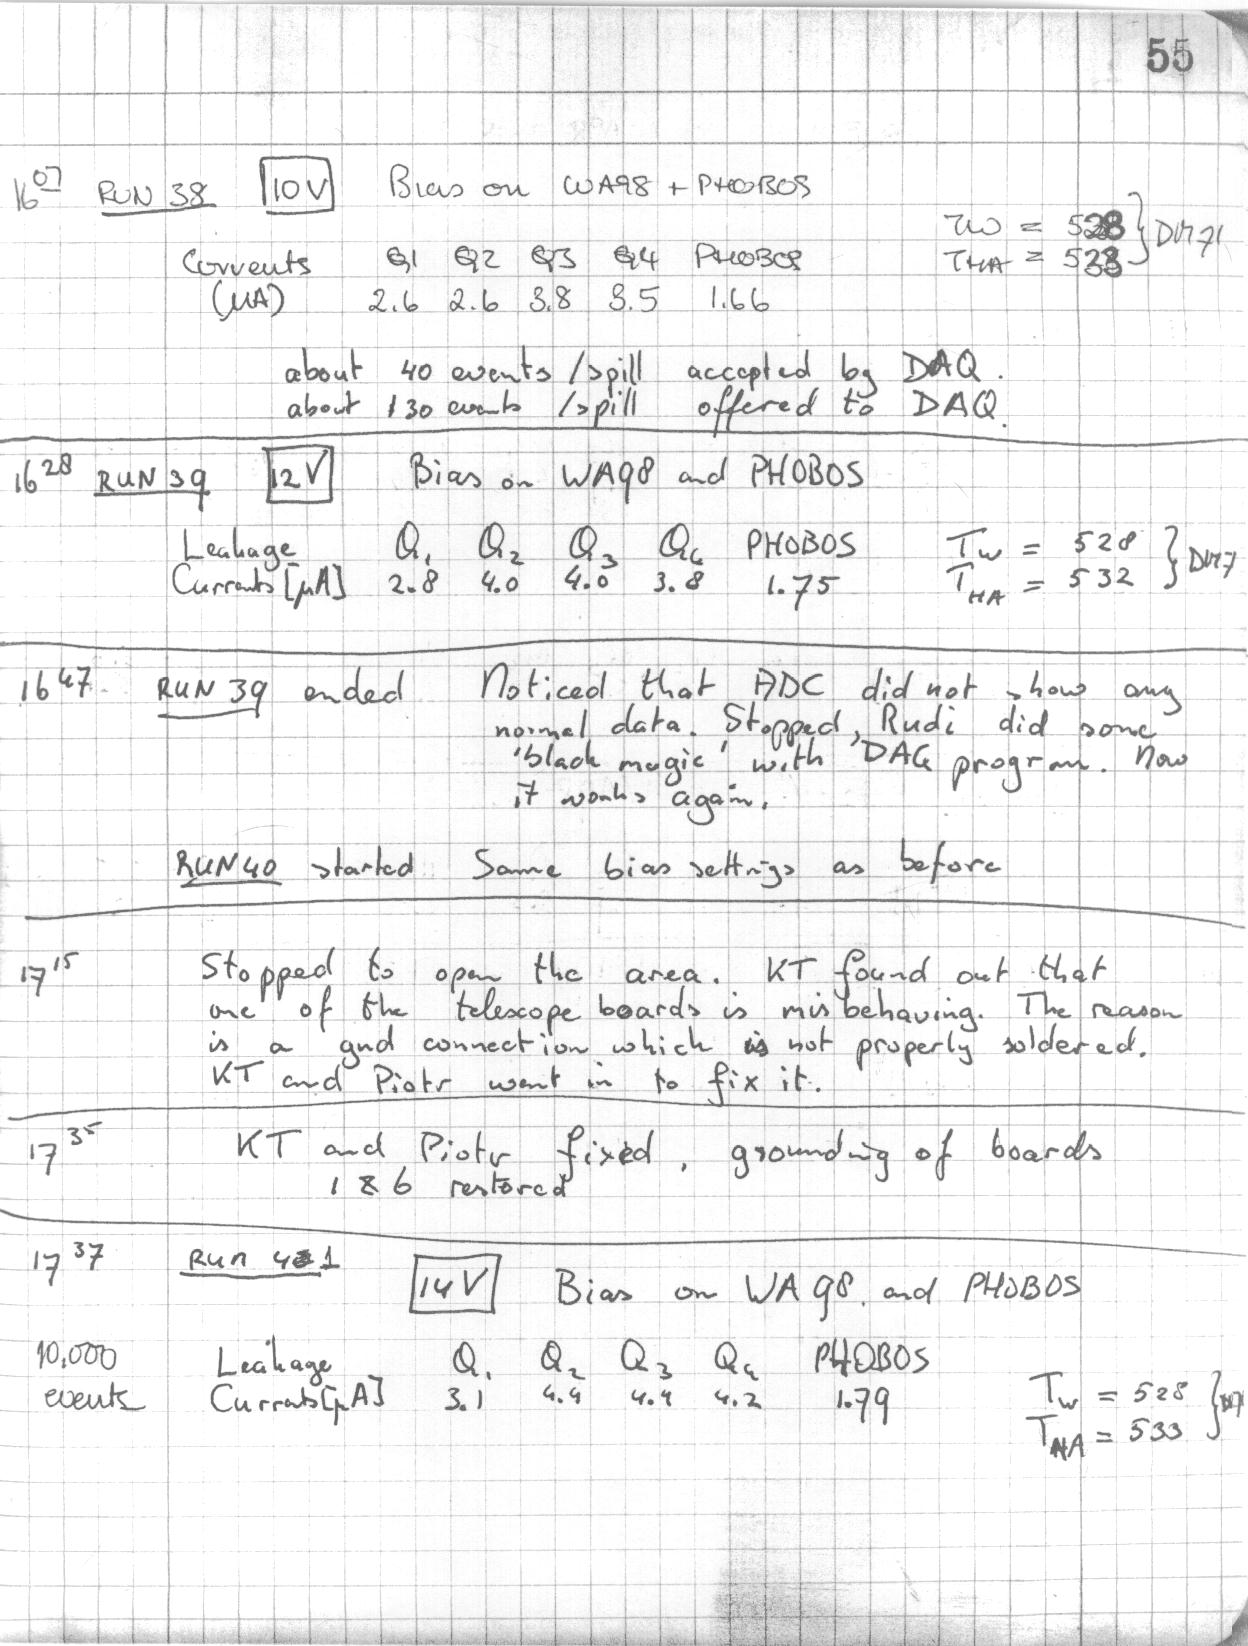 55
16 07 RUN 38 10V Bias on WA98 + PHOBOS
TW = 528
Currents Q1 Q2 Q3 Q4 PHOBOS THA = 533
(μA) 2.6 2.6 3.8 3.5 1.66
about 40 events /spill accepted by DAQ.
about 130 events /spill offered to DAQ.
16 28 RUN 39 12V Bias on WA98 and PHOBOS
Leakage Q1 Q2 Q3 Q4 PHOBOS Tw = 528
Currents [μA] 2.8 4.0 4.0 3.8 1.75 THA = 532
16 47 RUN 39 ended Noticed that ADC did not show any
normal data. Stopped, Rudi did some
'black magic' with DAQ program. Now
it works again.
RUN 40 started Same bias settings as before
17 15 Stopped to open the area. KT found out that
one of the telescope boards is misbehaving. The reason
is a gnd connection which is not properly soldered.
KT and Piotr went in to fix it.
17 35 KT and Piotr fixed, grounding of boards
1 & 6 restored
17 37 Run 41 14V Bias on WA98 and PHOBOS
10,000 Leakage Q1 Q2 Q3 Q4 PHOBOS
events Currents [μA] 3.1 4.4 4.4 4.2 1.79 Tw = 528
THA = 533